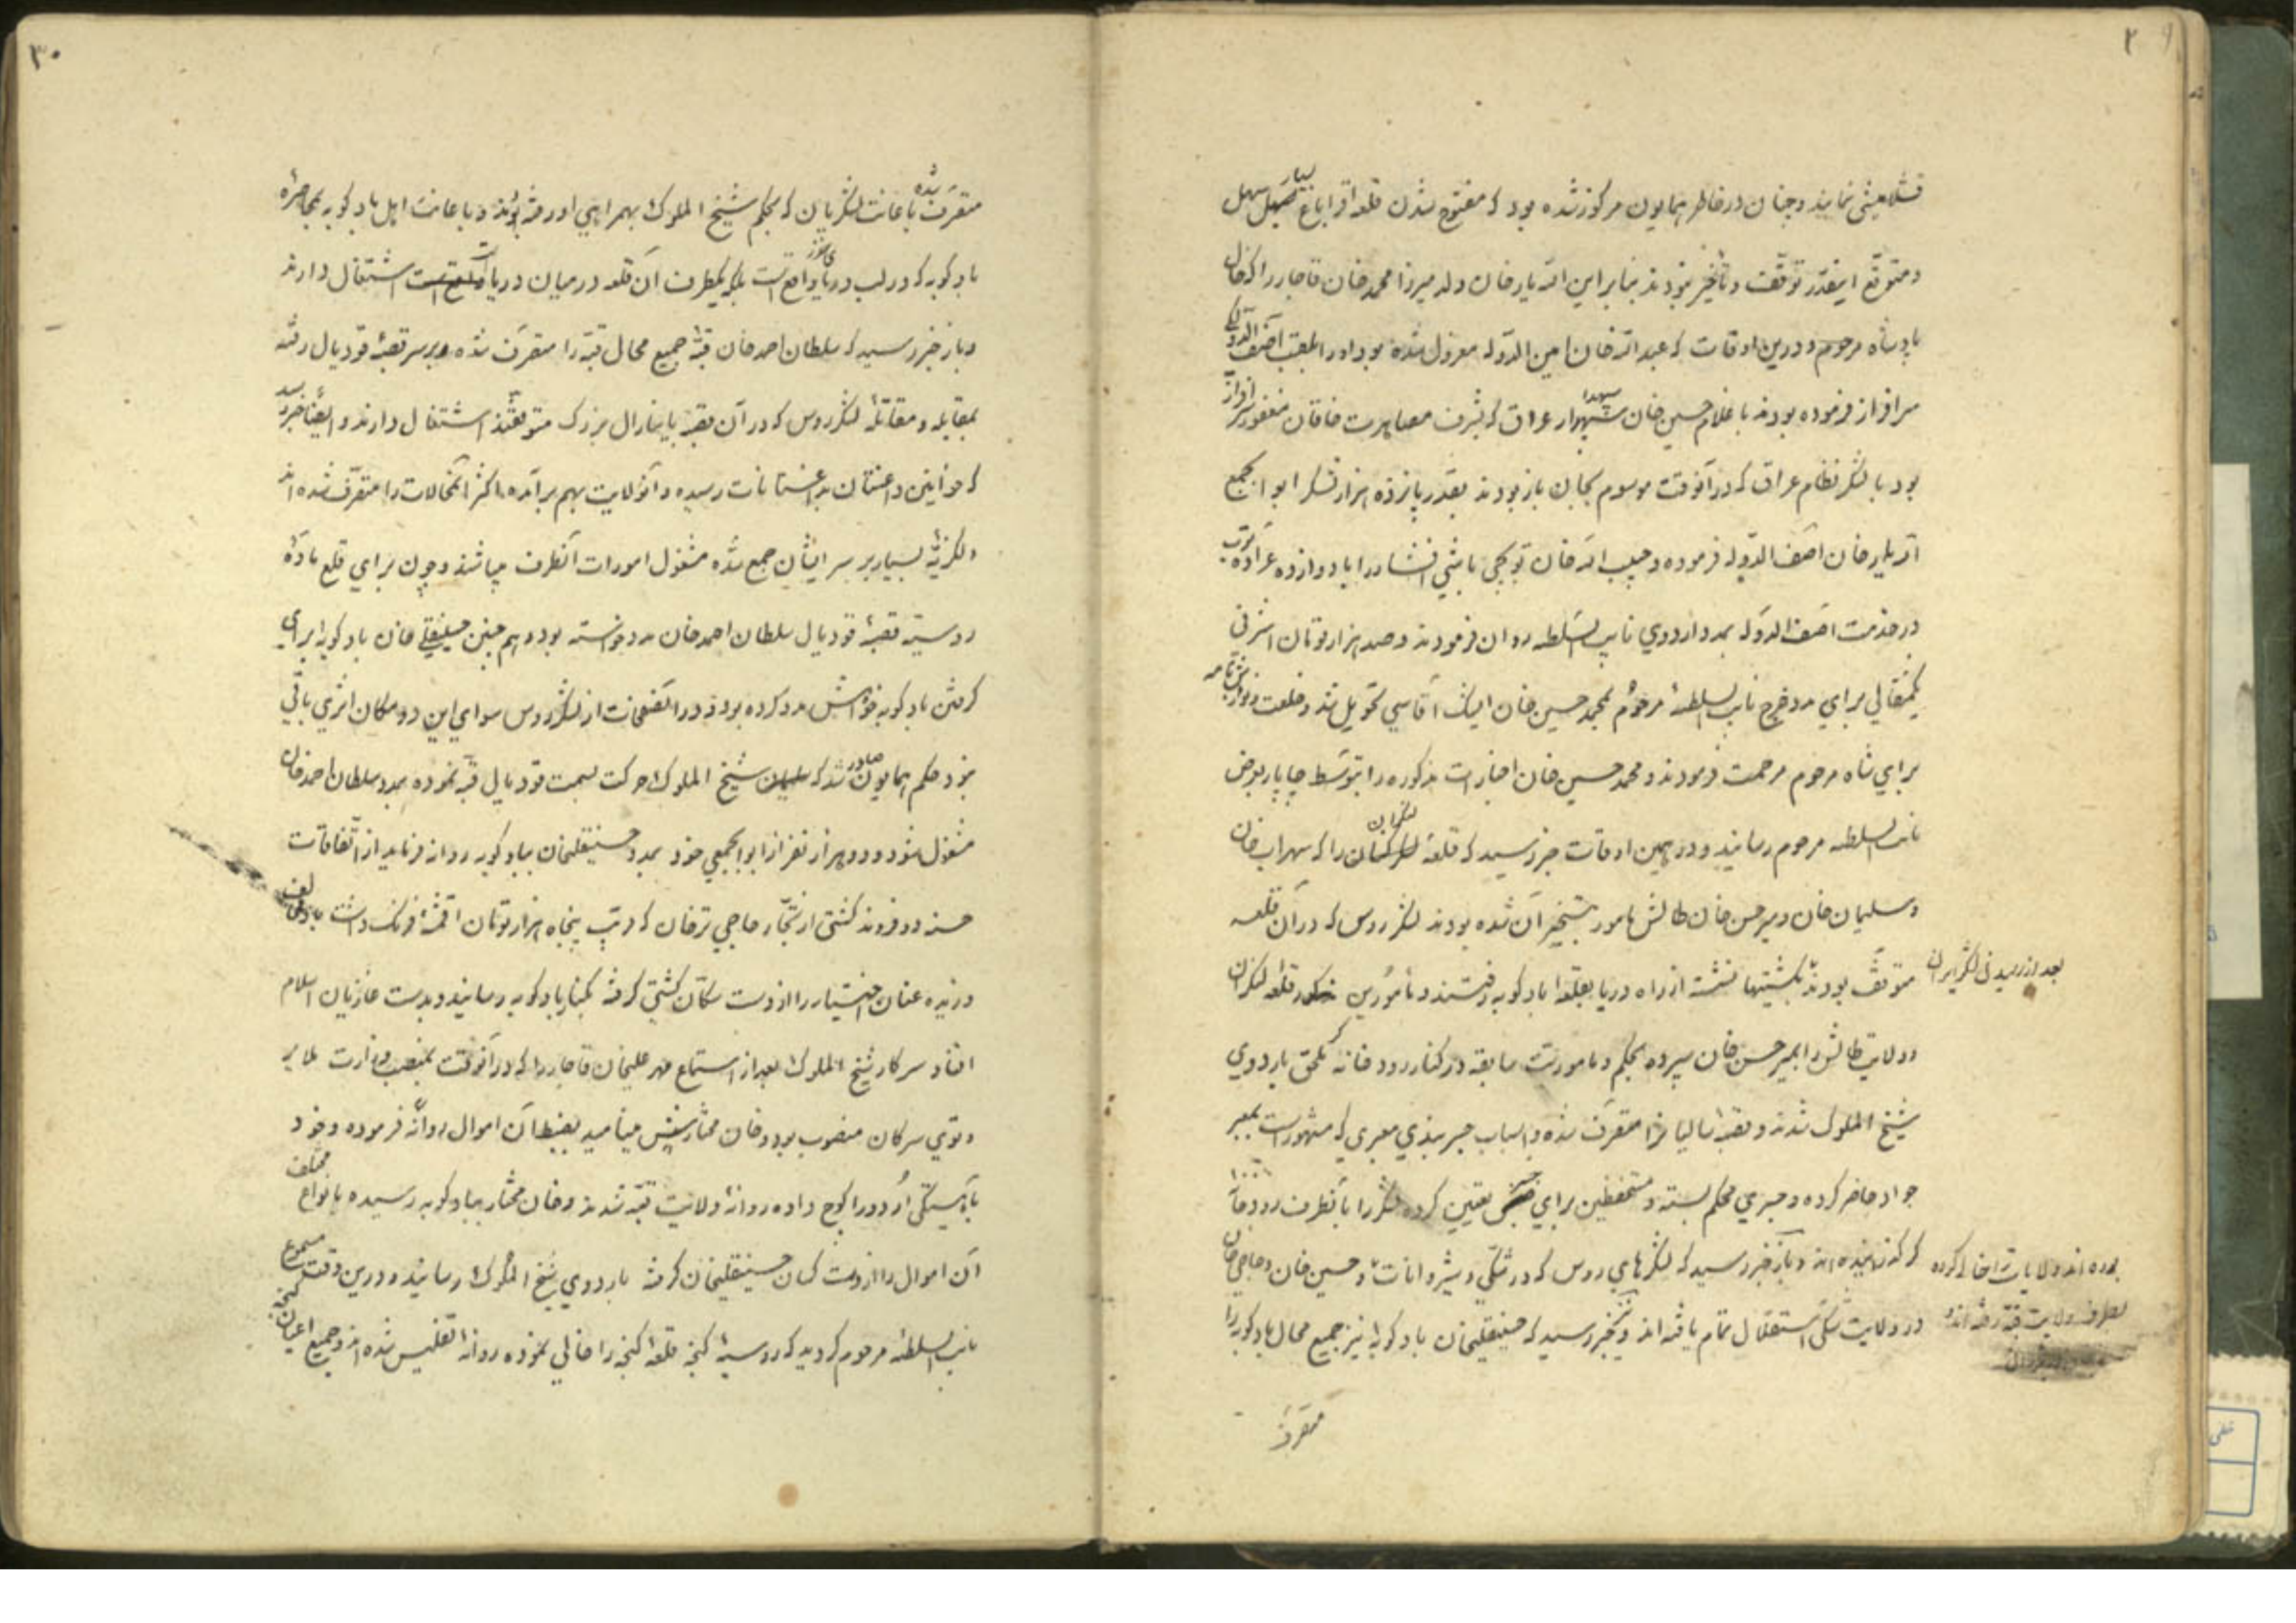 ۲۹
قشلامیشی نمایند و چنان در خاطر همایون مرکوز شده بود که مفتوح شدن قلعه بسیار سهل
و متوقع اینقدر توقف و تأخیر نبودند بنا بر این الله یار خان ولد میرزا محمد خان قاجار را که خال
پادشاه مرحوم و درین اوقات که عبدالله خان امین الدوله معزول شده بود او را بلقب آصف الدوله
سرافراز فرموده بودند با غلامحسین خان سپهدار عراق که بشرف مصاهرت خاقان مغفور سرافراز
بود با لشکر نظام عراق که در آنوقت موسوم بجان باز بودند بقدر پانزده هزار لشکر ابوابجمع
الله یار خان آصف الدوله فرموده و حبیب الله خان توپچی باشی افشار را با دوازده عراده توپ
در خدمت آصف الدوله بمدد اردوی نایب السلطنه روان فرمودند و صد هزار تومان اشرفی
یکمثقالی برای مدد خرج نایب السلطنه مرحوم بمحمد حسین خان ایشک آقاسی تحویل شد و خلعت و نوازش نامه
برای شاه مرحوم مرحمت فرمودند و محمد حسین خان اخبارات مذکوره را بتوسط چاپار بعرض
نایب السلطنه مرحوم رسانید و در همین اوقات خبر رسید که قلعه لنکران را که سهراب خان
و سلیمان خان و میر حسن خان طالش مامور بتسخیر آن شده بودند لشکر روس که در آن قلعه
بعد از رسیدن لشکر ایران
متوقف بودند بکشتیها نشسته از راه دریا بقلعه بادکوبه رفتند و مأمورین قلعه لنکران
و ولایت طالش را بمیر حسن خان سپرده بحکم و مأموریت سابقه در کنار رودخانه ملحق باردوی
شیخ الملوک شدند و قصبه سالیان را متصرف شده و اسباب جسر بندی معبری که مشهور است بمعبر
جواد حاضر کرده و جسری محکم بسته و مستحفظین برای جسر تعیین کرده لشکر را بآنطرف رودخانه
گذرانیده اند و باز خبر رسید که لشکرهای روس که در شکی و شیروانات بوده اند ولایات را خالی کرده
بطرف ولایت قبه رفته اند و حسین خان و حاجی خان
در ولایت شکی استقلال تمام یافته اند و نیز خبر رسید که حسینقلیخان بادکوبه نیز جمیع محال بادکوبه را
متصرف
۳۰
متصرف شده باعانت لشکریان که بحکم شیخ الملوک بهمراهی او رفته بودند و باعانت اهل بادکوبه بمحاصره
بادکوبه که در لب دریای خزر واقع است بلکه یکطرف آن قلعه در میان دریا است اشتغال دارند
و باز خبر رسید که سلطان احمد خان قبه جمیع محال قبه را متصرف شده و بر سر قصبه قودیال رفته
بمقابله و مقاتله لشکر روس که در آن قصبه با ینارال بزرگ متوقفند اشتغال دارند و ایضا خبر رسید
که خوانین داغستان بداغستانات رسیده و آنولایت بهم برآمده اکثر آنمحالات را متصرف شده اند
و لکزیه بسیار بر سر ایشان جمع شده مشغول امورات آنطرف میباشند و چون برای قلع ماده
روسیه قصبه قودیال سلطان احمد خان مدد خواسته بود و هم چنین حسینقلی خان بادکوبه برای
گرفتن بادکوبه خواهش مدد کرده بود و در آنصفحات از لشکر روس سوای این دو مکان اثری باقی
نبود حکم همایون صادر شد که شیخ الملوک حرکت بسمت قودیال قبه نموده بمدد سلطان احمد خان
مشغول شود و دو هزار نفر از ابوابجمعی خود بمدد حسینقلیخان ببادکوبه روانه فرماید از اتفاقات
حسنه دو فروند کشتی از تجار حاجی ترخان که قریب پنجاه هزار تومان اقمشه فرنگ داشت باد مخالف
وزیده عنان اختیار را از دست سکان کشتی گرفته بکنار بادکوبه رسانید و بدست غازیان اسلام
افتاد سرکار شیخ الملوک بعد از استماع مهر علیخان قاجار را که در آنوقت بمنصب وزارت ملایر
و تویسرکان منصوب بود و خان مختارش مینامید بضبط آن اموال روانه فرموده و خود
بآهستگی اردو را کوچ داده روانه ولایت قبه شدند و خان مختار ببادکوبه رسیده بانواع مختلف
آن اموال را از دست کسان حسینقلیخان گرفته باردوی شیخ الملوک رسانید و درین وقت مسموع
نایب السلطنه مرحوم گردید که روسیه گنجه قلعه گنجه را خالی نموده روانه تفلیس شده اند و جمیع اعیان گنجه